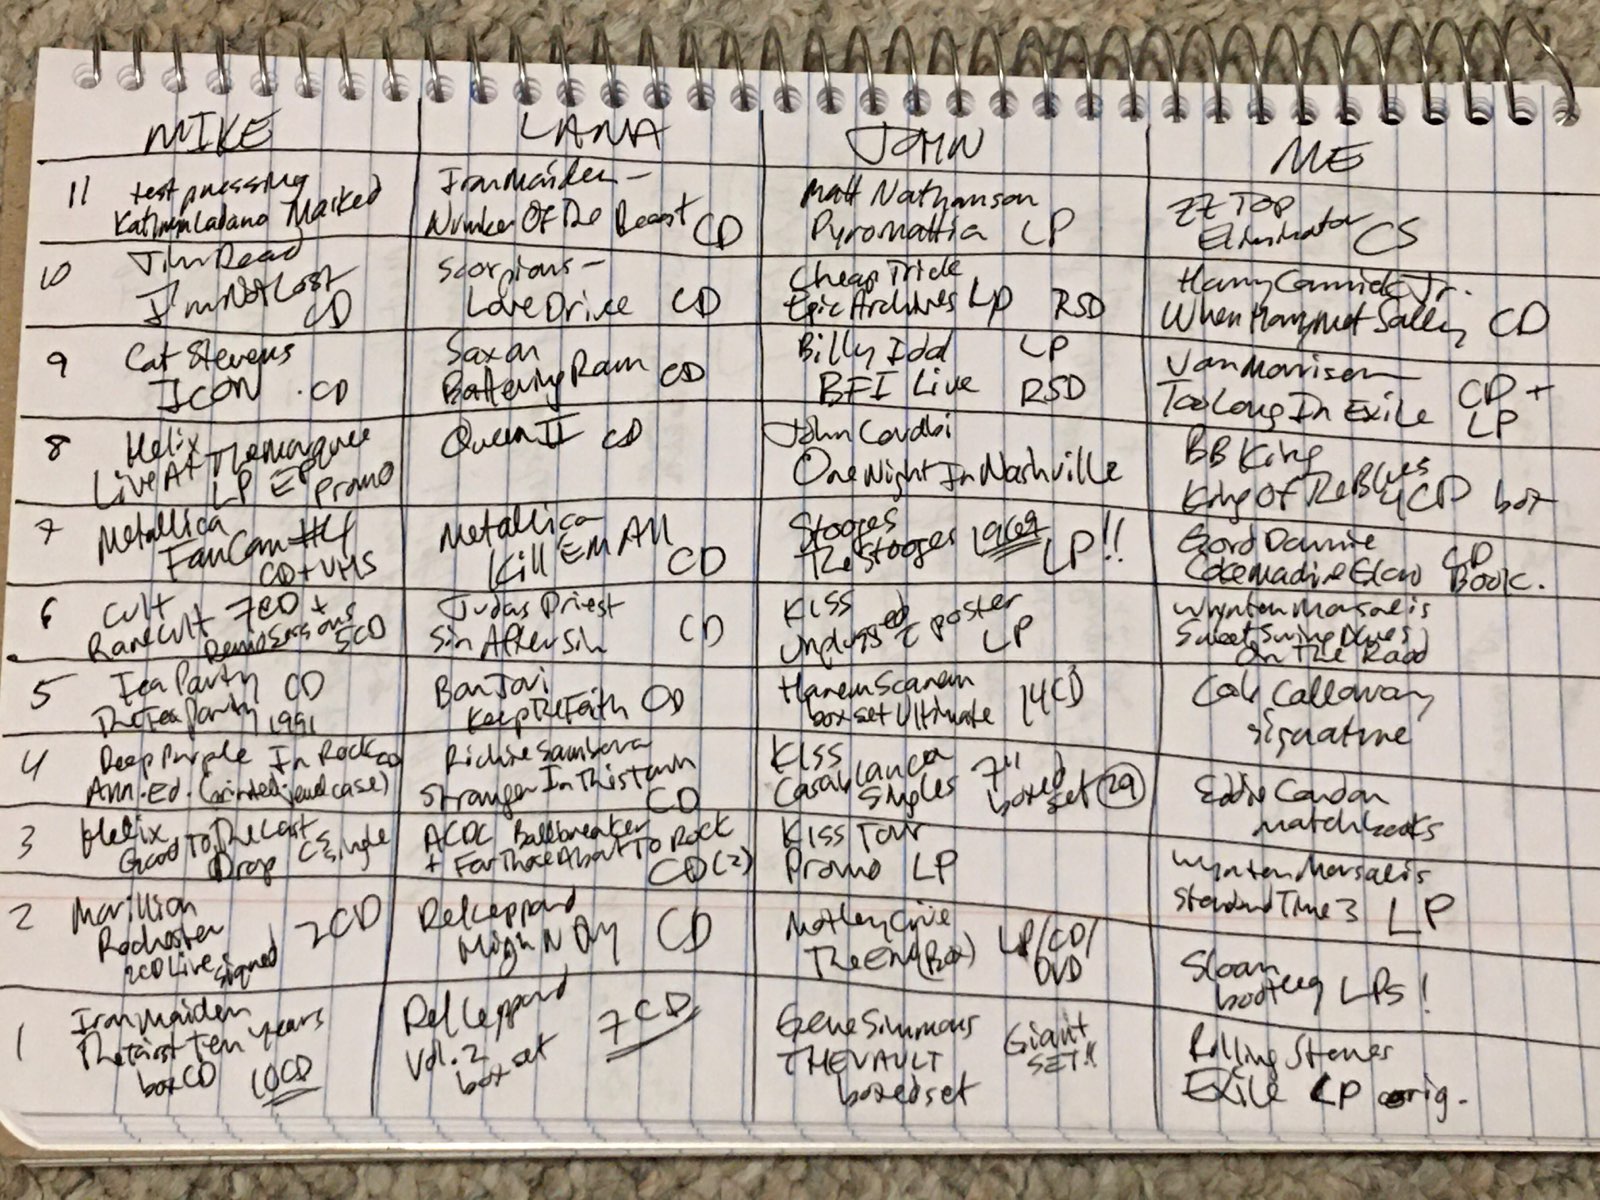 MIKE LANA JOHN ME
11
test pressing
Kathryn Ladano Masked
Iron Maiden -
Number Of The Beast CD
Matt Nathanson
Pyromattia LP
ZZ Top
Eliminator CS
10
Jim Read
I'm Not Lost
CD
Scorpions -
LoveDrive CD
Cheap Trick
Epic Archives LP RSD
Harry Connick Jr.
When Harry Met Sally CD
9
Cat Stevens
ICON . CD
Saxon
Battering Ram CD
Billy Idol LP
BFI Live RSD
Van Morrison
Too Long In Exile CD +
LP
8
Helix
Live At The Marquee
LP EP promo
Queen II CD
John
One Night In Nashville
BB King
King Of The Blues
4CD box
7
Metallica
Fan Can #4
CD + VHS
Metallica
Kill Em All
CD
Stooges
The Stooges 1969
LP!!
Gord Downie
Coke Machine Glow CD
Book.
6
Cult 7CD +
Rare Cult
Demo Sessions
5CD
Judas Priest
Sin After Sin CD
KISS
Unplugged c poster
LP
Wynton Marsalis
Sweet Swing Blues
On The Road
5
Tea Party CD
The Tea Party 1991
Bon Jovi
Keep The Faith CD
Harem Scarem
box set Ultimate 14CD
Cab Calloway
signature
4
Deep Purple In Rock CD
Ann. Ed. (printed jewel case)
Richie Sambora
Stranger In This Town
CD
KISS
Casablanca
Singles 7"
boxed
set (29)
Eddie Condon
matchbooks
3
Helix
Good To The Last
Drop CS single
ACDC Ballbreaker
+ For Those About To Rock
CD (2)
KISS Tour
Promo LP
Wynton Marsalis
Standard Time 3 LP
2
Marillion
Rochester 2CD
2CD Live signed
Def Leppard
High N Dry CD
Motley Crue
The End (Box) LP/CD/
DVD
Sloan
bootleg LPs!
1
Iron Maiden
The First Ten Years
box CD 10CD
Def Leppard
Vol. 2
box set 7CD
Gene Simmons
THE VAULT
boxed set
Giant
SET!!
Rolling Stones
Exile LP orig.